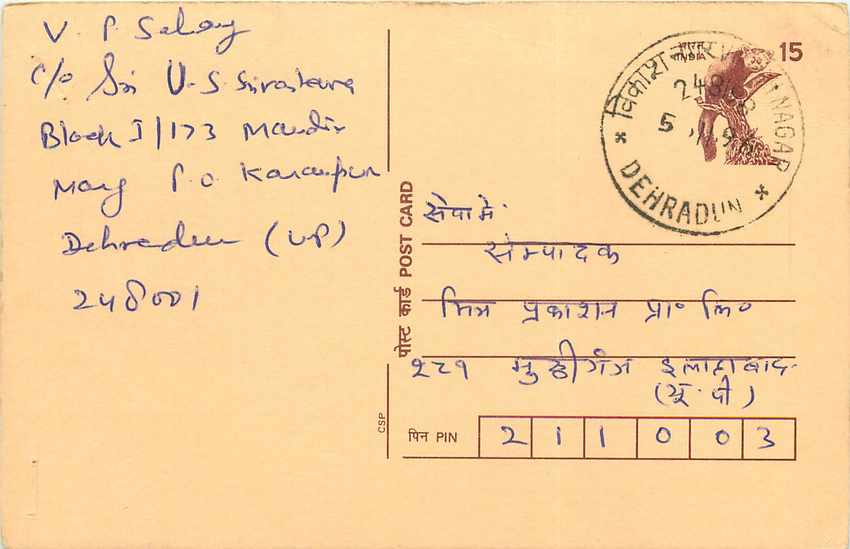 V P Sahay
C/o Sri V. S. Srivastava
Block I/173 Mandir
Marg P.O Karanpur
Dehradun (UP)
248001
भारत
INDIA
15
DEHRADUN
पोस्ट कार्ड POST CARD
CSP
सेवा में.
सम्पादक
मित्र प्रकाशन प्रा० लि०
२८१ मुठ्ठीगंज इलाहाबाद
(यू. पी)
पिन PIN 2 1 1 0 0 3